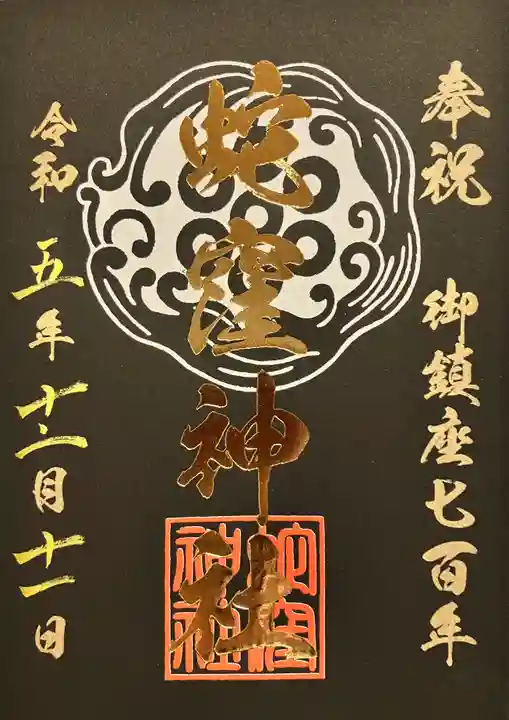 奉祝 御鎮座七百年
蛇窪神社
蛇窪
神社
令和 五年 十二月 十一日